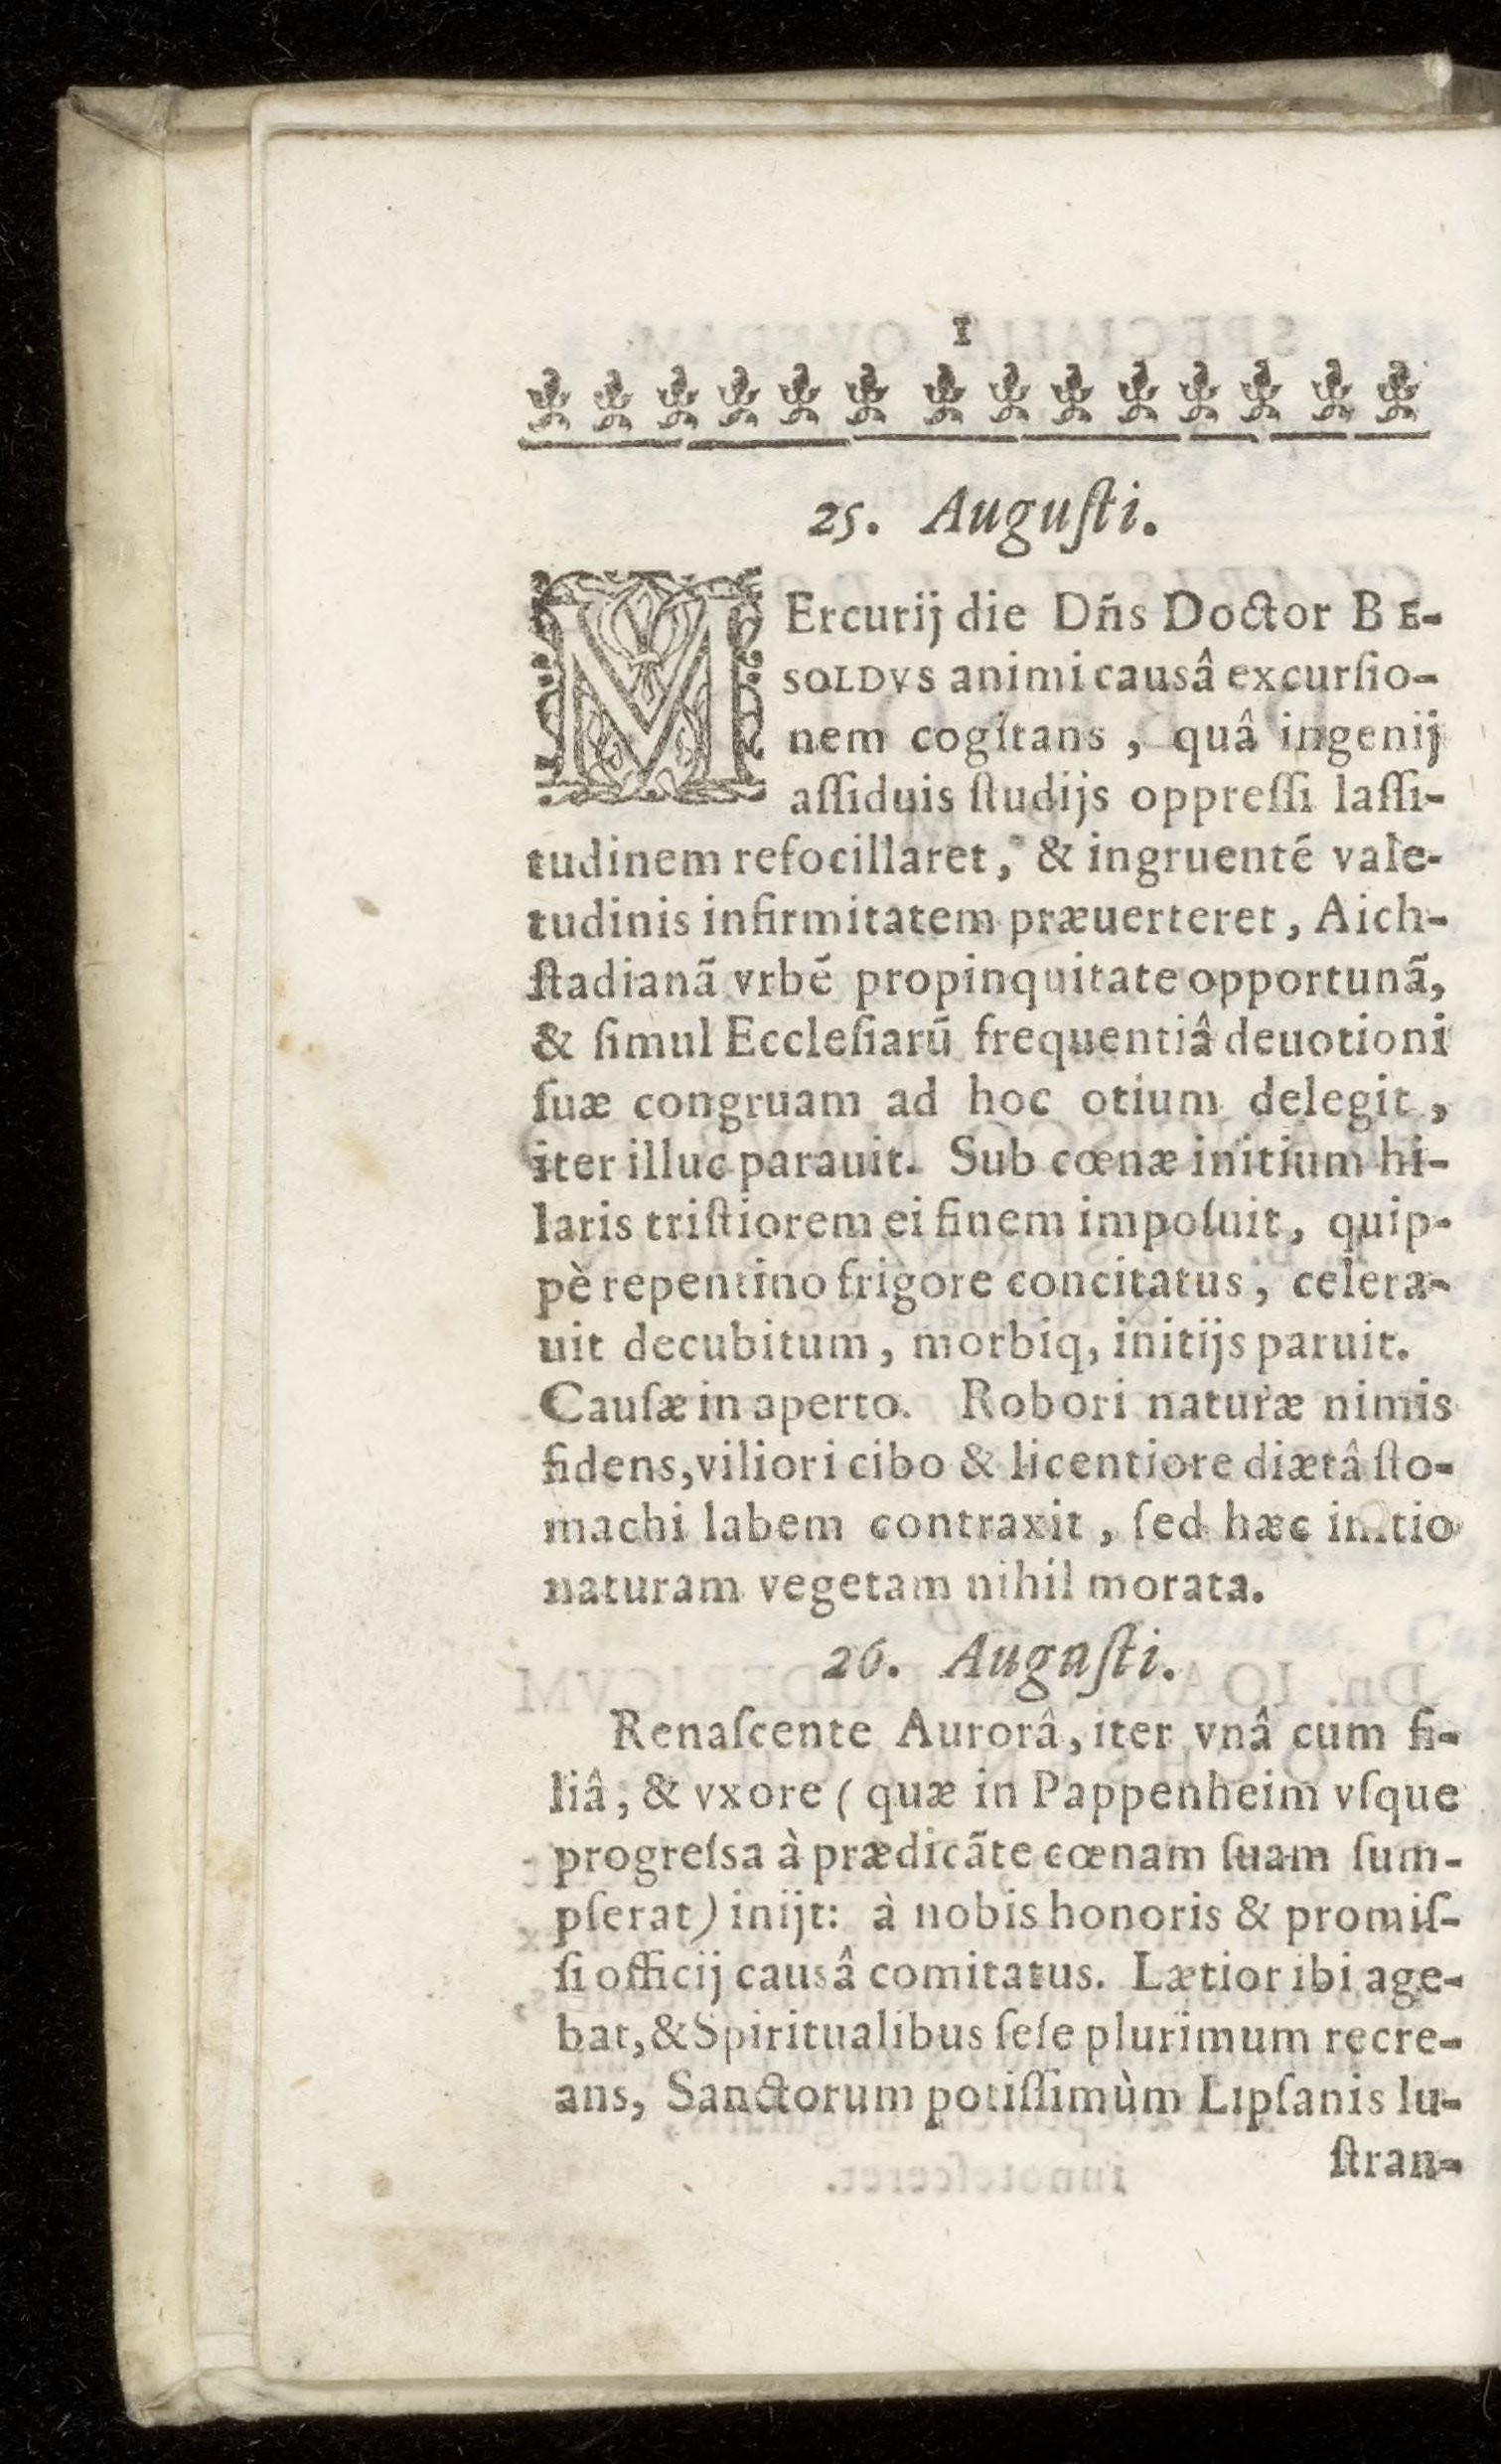 1
25. Auguſti.
MErcurij die Dñs Doctor BE-
SOLDVS animi causâ excurſio-
nem cogitans, quâ ingenij
aſſiduis ſtudijs oppreſſi laſſi-
tudinem refocillaret, & ingruentẽ vale-
tudinis infirmitatem præuerteret, Aich-
ſtadianã vrbẽ propinquitate opportunã,
& ſimul Eccleſiarũ frequentiâ deuotioni
ſuæ congruam ad hoc otium delegit,
iter illuc parauit. Sub cœnæ initium hi-
laris triſtiorem ei finem impoſuit, quip-
pè repentino frigore concitatus, celera-
uit decubitum, morbiq, initijs paruit.
Cauſæ in aperto. Robori naturæ nimis
fidens, viliori cibo & licentiore diætâ ſto-
machi labem contraxit, ſed hæc initio
naturam vegetam nihil morata.
26. Auguſti.
Renaſcente Aurorâ, iter vnâ cum fi-
liâ, & vxore (quæ in Pappenheim vſque
progreſsa à prædicãte cœnam ſuam ſum-
pſerat) inijt: à nobis honoris & promiſ-
ſi officij causâ comitatus. Lætior ibi age-
bat, & Spiritualibus ſeſe plurimum recre-
ans, Sanctorum potiſſimùm Lipſanis lu-
ſtran-